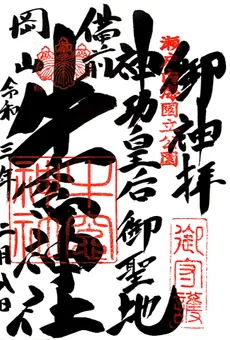 御神拝
瀬戸内海國立公園
神功皇后御聖地
備前
岡山
牛窓神社
令和三年二月八日
御守護
牛窓神社